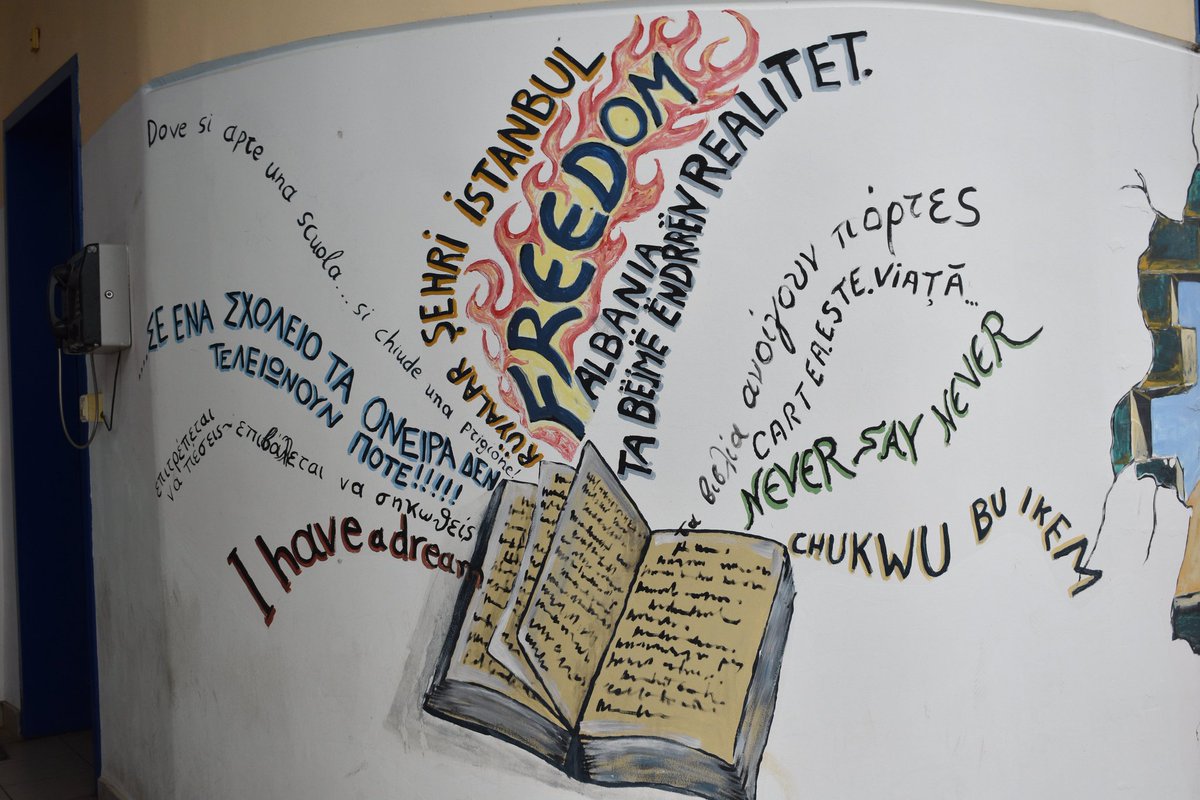 Dove si apre una scuola... si chiude una prigione!
...ΣΕ ΕΝΑ ΣΧΟΛΕΙΟ ΤΑ ΟΝΕΙΡΑ ΔΕΝ
ΤΕΛΕΙΩΝΟΥΝ ΠΟΤΕ!!!!!
επιτρέπεται
να πέσεις~επιβάλεται να σηκωθείς
I have a dream
RÜYALAR ŞEHRİ İSTANBUL
FREEDOM
ALBANIA
TA BËJMË ËNDRRËN REALITET.
τα βιβλία ανοίγουν πόρτες
CARTEA.ESTE.VIAȚĂ...
NEVER~SAY NEVER
CHUKWU BU IKEM